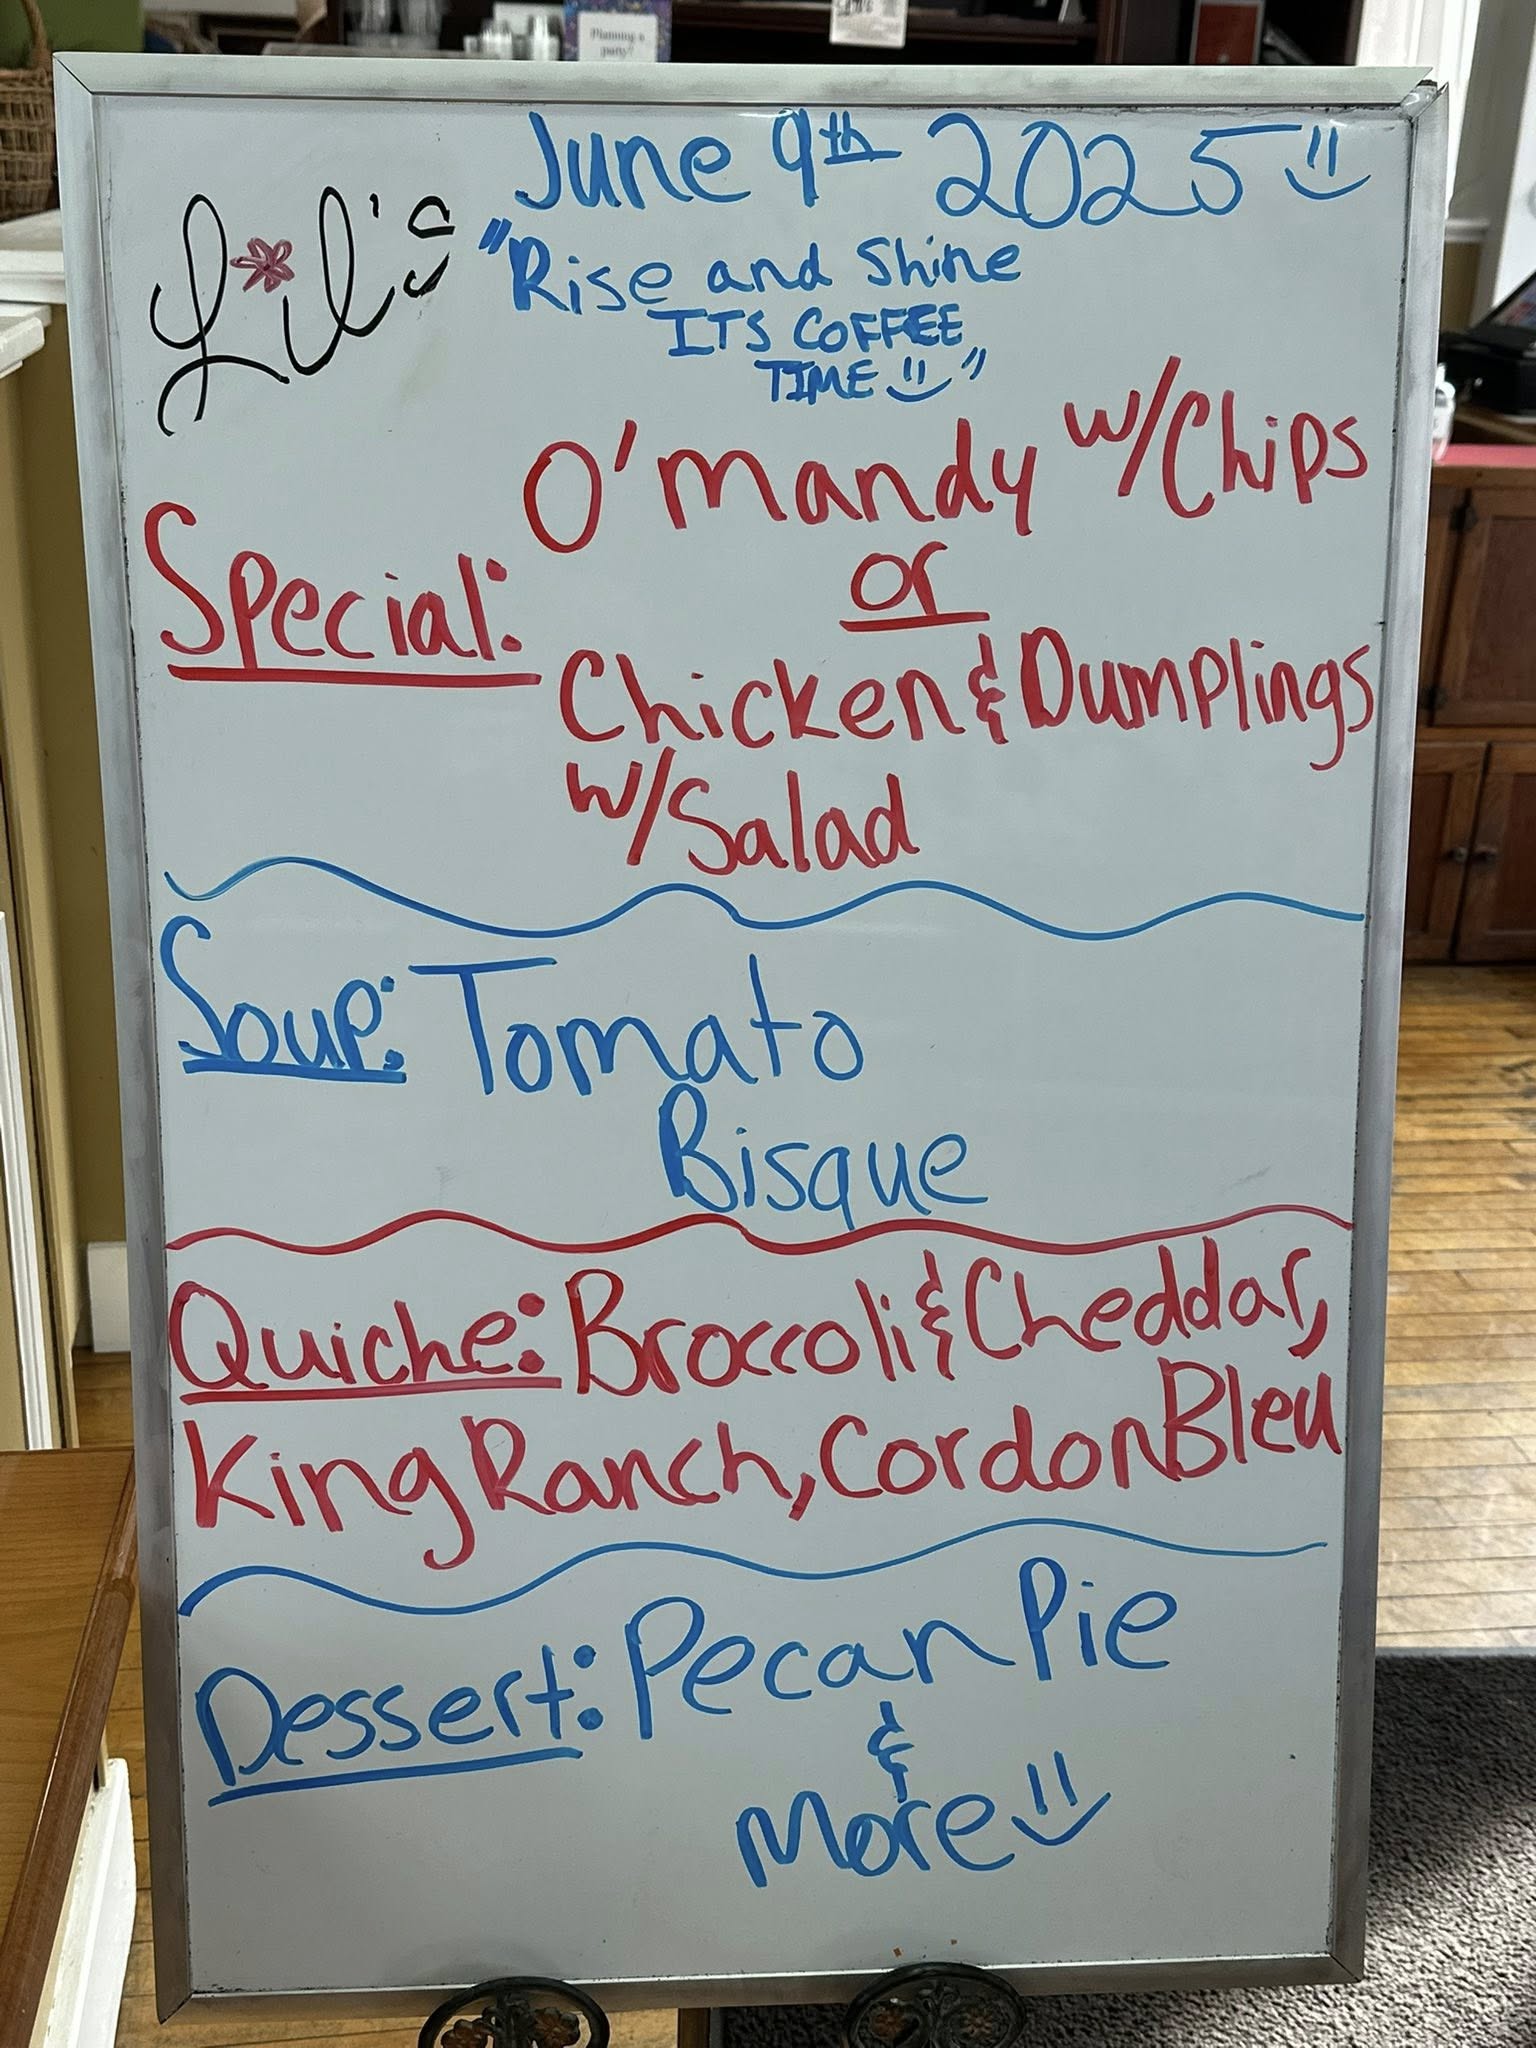 Planning a
party?
June 9th 2025
Lil's
"Rise and Shine
ITS COFFEE
TIME"
O'Mandy w/Chips
or
Special:
Chicken & Dumplings
w/Salad
Soup: Tomato
Bisque
Quiche: Broccoli & Cheddar,
King Ranch, Cordon Bleu
Dessert: Pecan Pie
&
More